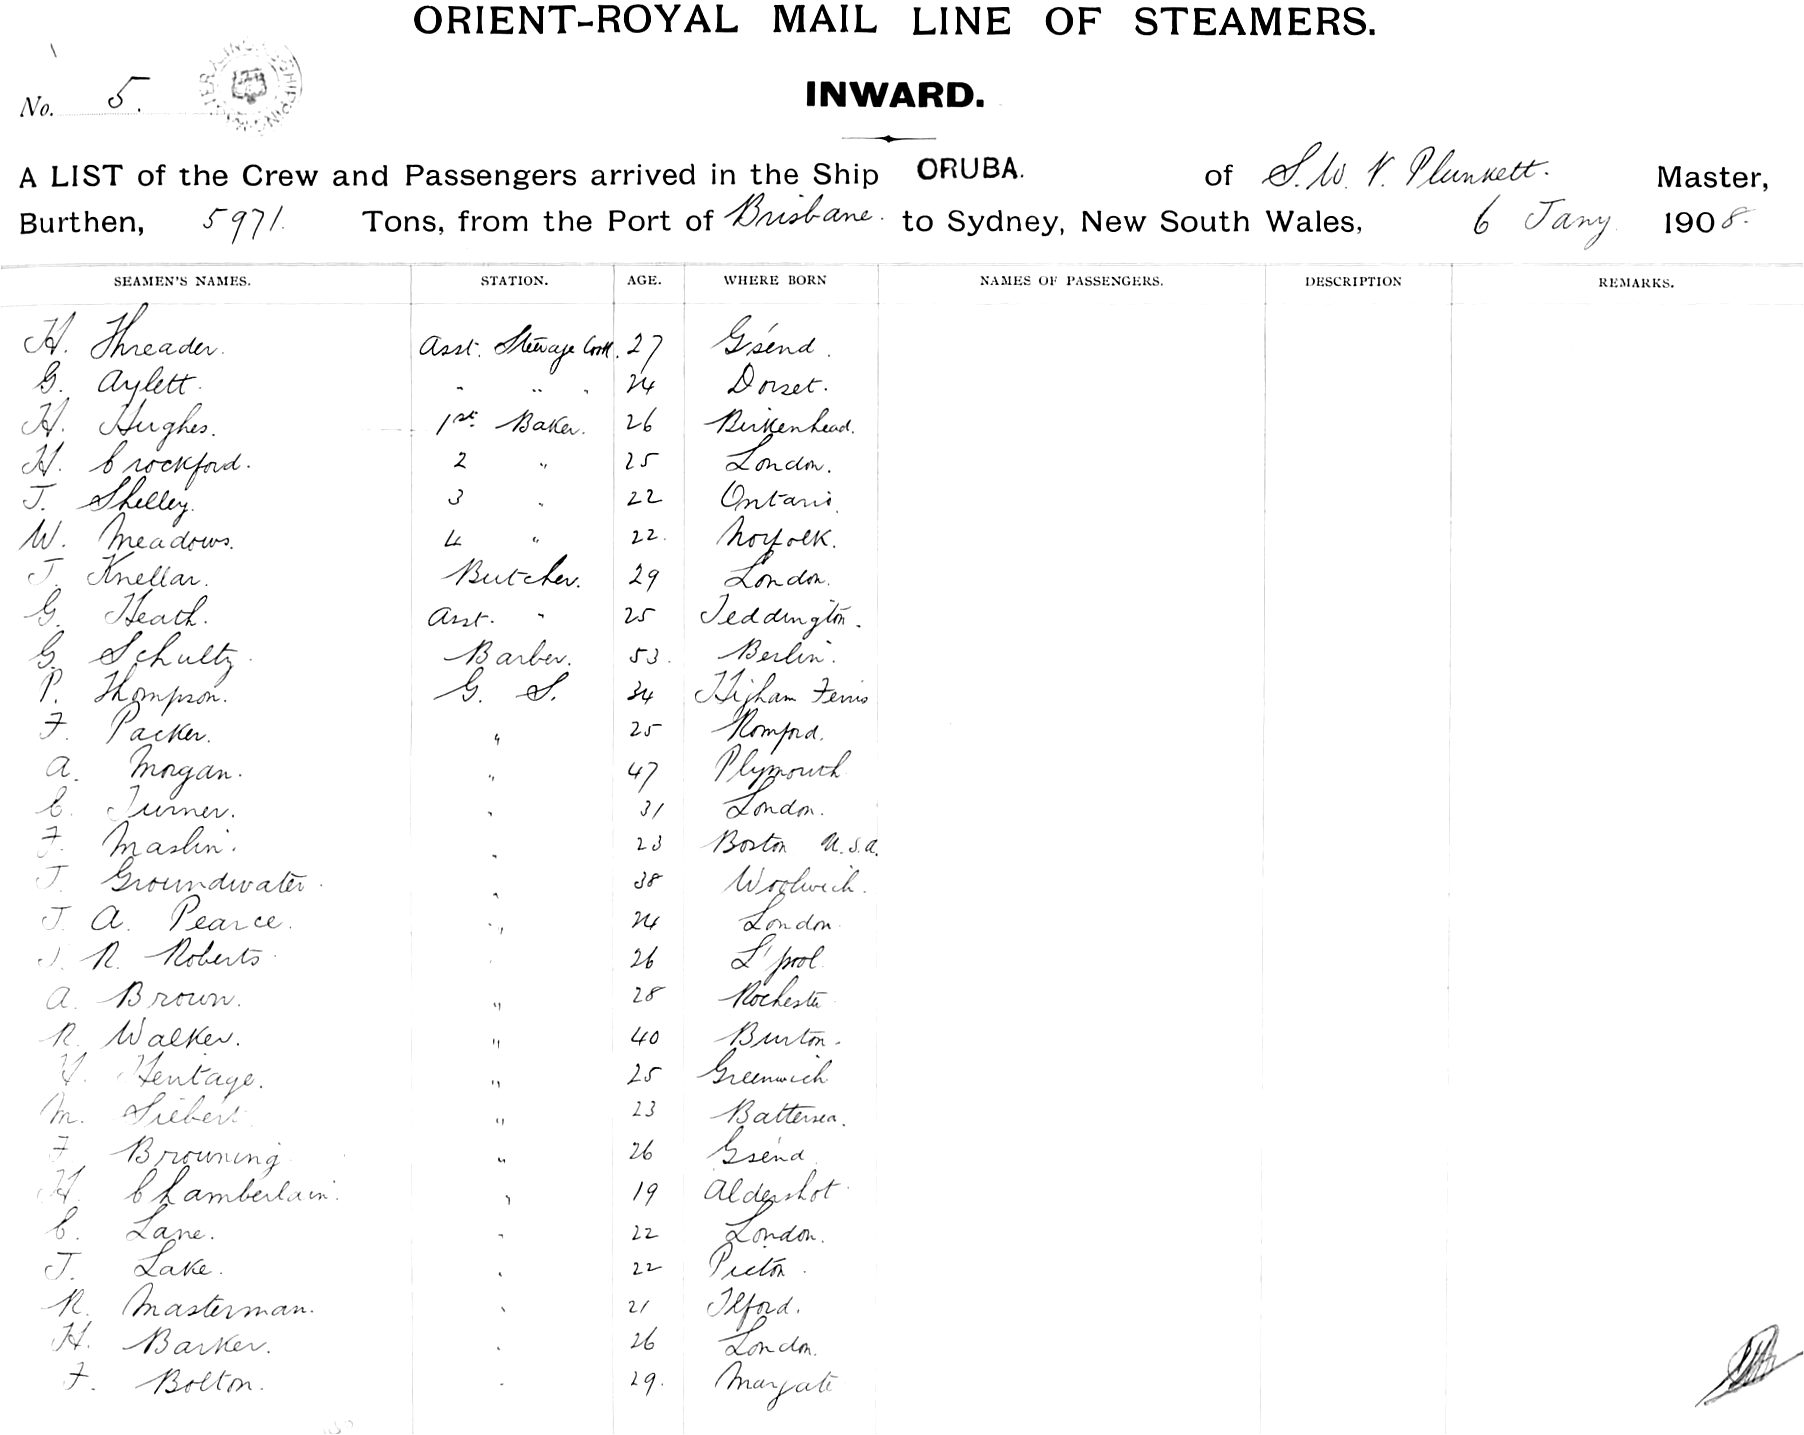 ORIENT-ROYAL MAIL LINE OF STEAMERS.
No. 5.
INWARD.
A LIST of the Crew and Passengers arrived in the Ship ORUBA. of S. W. V. Plunkett. Master,
Burthen, 5971. Tons, from the Port of Brisbane. to Sydney, New South Wales, 6 Jany 1908.
SEAMEN'S NAMES. STATION. AGE. WHERE BORN NAMES OF PASSENGERS. DESCRIPTION REMARKS.
H. Threader. Asst. Steerage Cook. 27 G'send.
G. Aylett. " " " 24 Dorset.
H. Hughes. 1st. Baker. 26 Birkenhead.
H. Crockford. 2 " 25 London.
J. Shelley. 3 " 22 Ontario.
W. Meadows. 4 " 22. Norfolk.
J. Knellar. Butcher. 29 London.
G. Heath. Asst. " 25 Teddington.
G. Schultz. Barber. 53. Berlin.
P. Thompson. G. S. 34 Higham Ferris
F. Packer. " 25 Romford.
A. Morgan. " 47 Plymouth
C. Turner. " 31 London.
F. Maslin. " 23 Boston U.S.A.
J. Groundwater. " 38 Woolwich.
J. A. Pearce. " 24 London.
J. R. Roberts. " 26 L'pool.
A. Brown. " 28 Rochester
R. Walker. " 40 Burton.
H. Heritage. " 25 Greenwich
M. Siebert. " 23 Battersea.
F. Browning. " 26 G'send.
H. Chamberlain. " 19 Aldershot.
C. Lane. " 22 London.
J. Lake. " 22 Picton.
R. Masterman. " 21 Ilford.
H. Barker. " 26 London.
F. Bolton. " 29. Margate